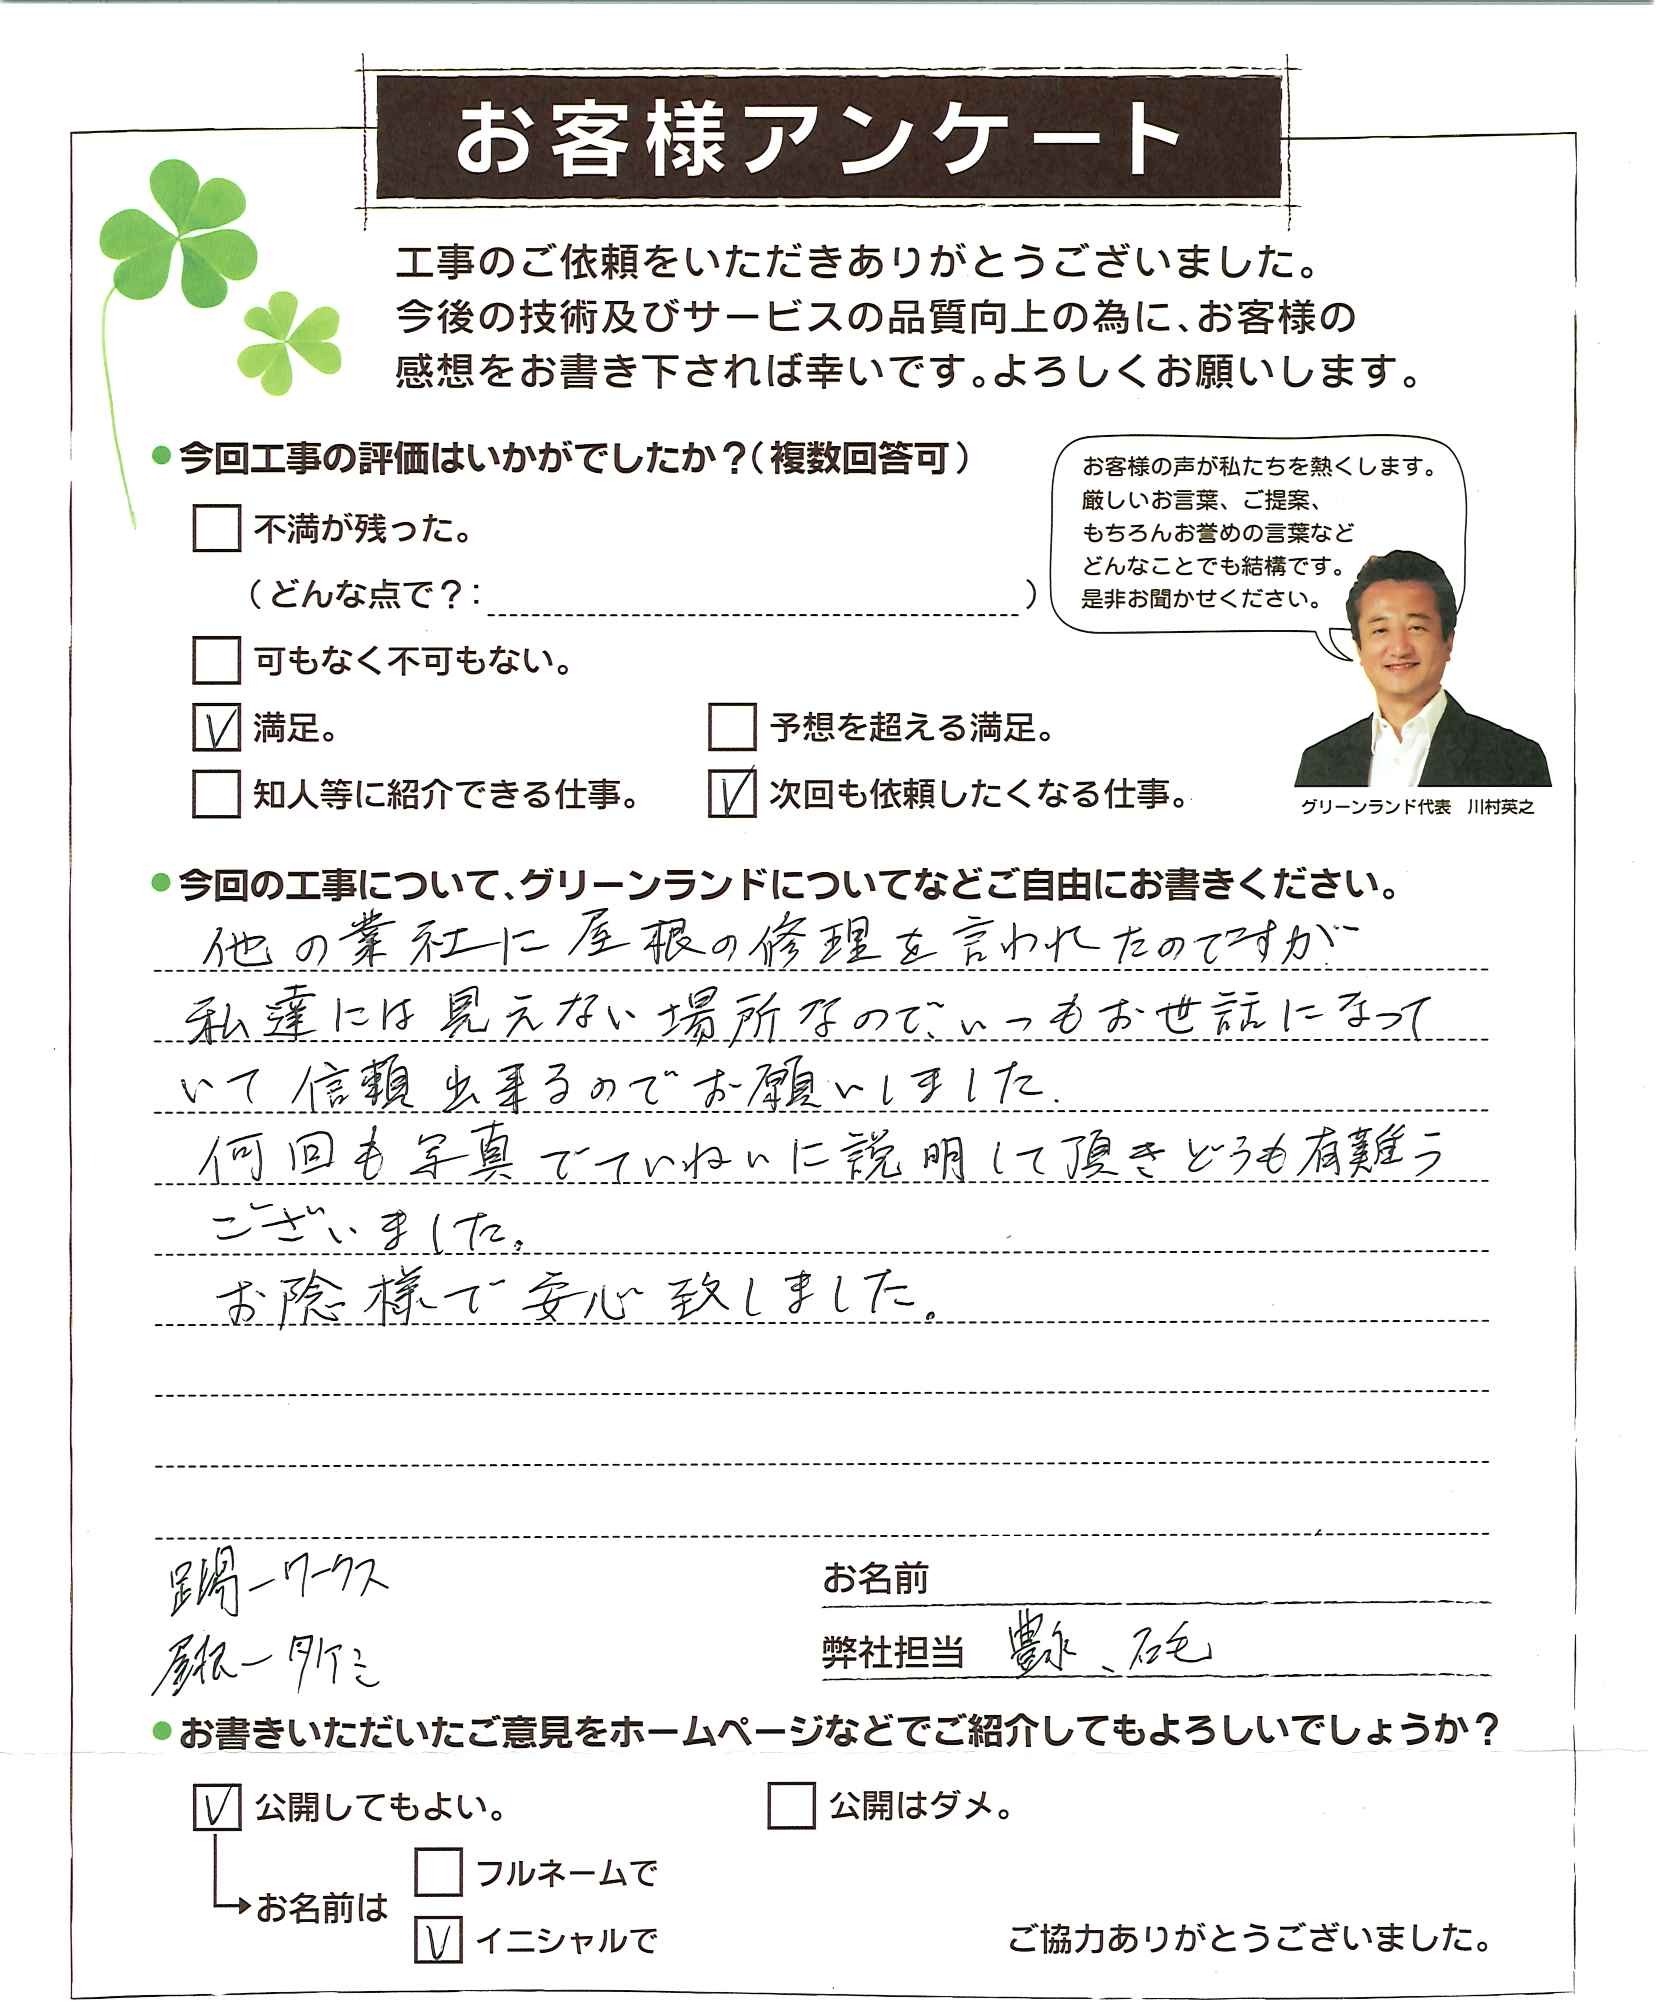 お客様アンケート
工事のご依頼をいただきありがとうございました。
今後の技術及びサービスの品質向上の為に、お客様の
感想をお書き下されば幸いです。よろしくお願いします。
●今回工事の評価はいかがでしたか?(複数回答可)
不満が残った。
(どんな点で?: )
可もなく不可もない。
☑満足。
予想を超える満足。
知人等に紹介できる仕事。
☑次回も依頼したくなる仕事。
お客様の声が私たちを熱くします。
厳しいお言葉、ご提案、
もちろんお誉めの言葉など
どんなことでも結構です。
是非お聞かせください。
グリーンランド代表 川村英之
●今回の工事について、グリーンランドについてなどご自由にお書きください。
他の業社に屋根の修理を言われたのですが
私達には見えない場所なので、いつもお世話になって
いて信頼出来るのでお願いしました.
何回も写真でていねいに説明して頂きどうも有難う
ございました。
お陰様で安心致しました。
足場ーワークス
屋根ータケミ
お名前
弊社担当 豊永、石毛
●お書きいただいたご意見をホームページなどでご紹介してもよろしいでしょうか?
☑公開してもよい。
公開はダメ。
お名前は
フルネームで
☑イニシャルで
ご協力ありがとうございました。